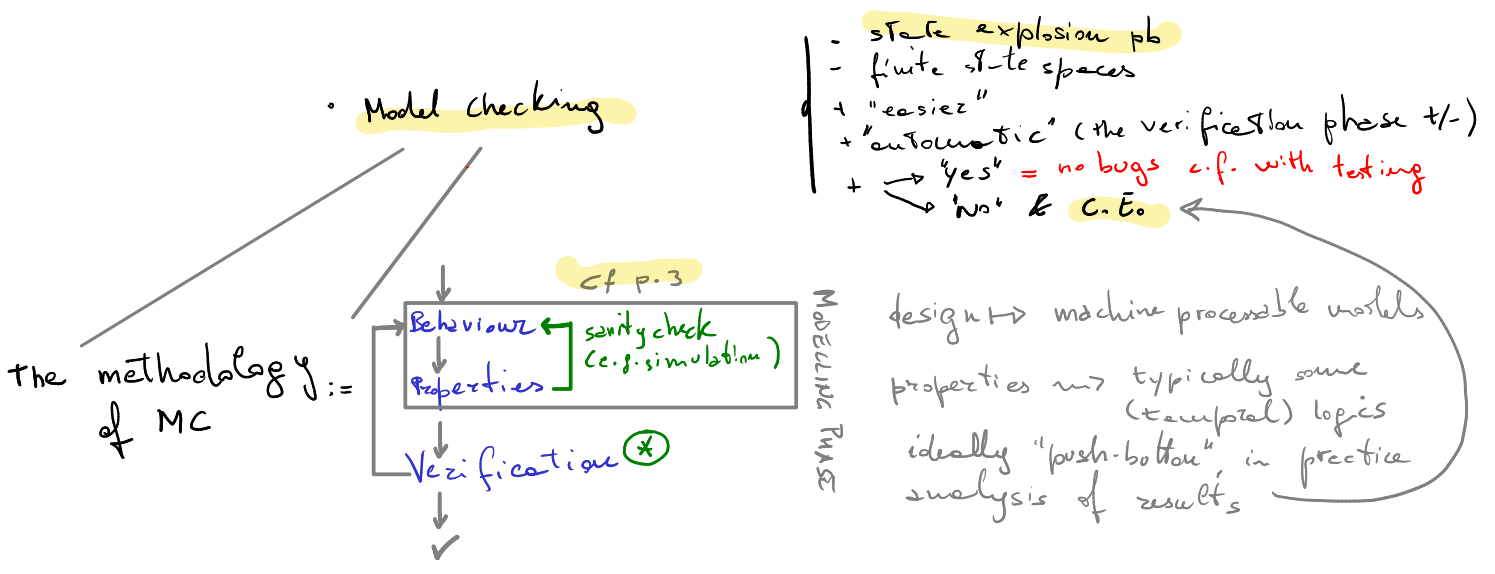 - state explosion pb
- finite st-te spaces
• Model checking
+ "easier"
+ "automatic" (the verification phase +/-)
+ → "yes" = no bugs c.f. with testing
→ "No" & C.E.
cf p.3
The methodology of MC :=
Behaviour
sanity check
(e.g. simulation)
Properties
Verification *
✓
MODELLING PHASE
design ↦ machine processable models
properties ⟿ typically some
(temporal) logics
ideally "push-button", in practice
analysis of results